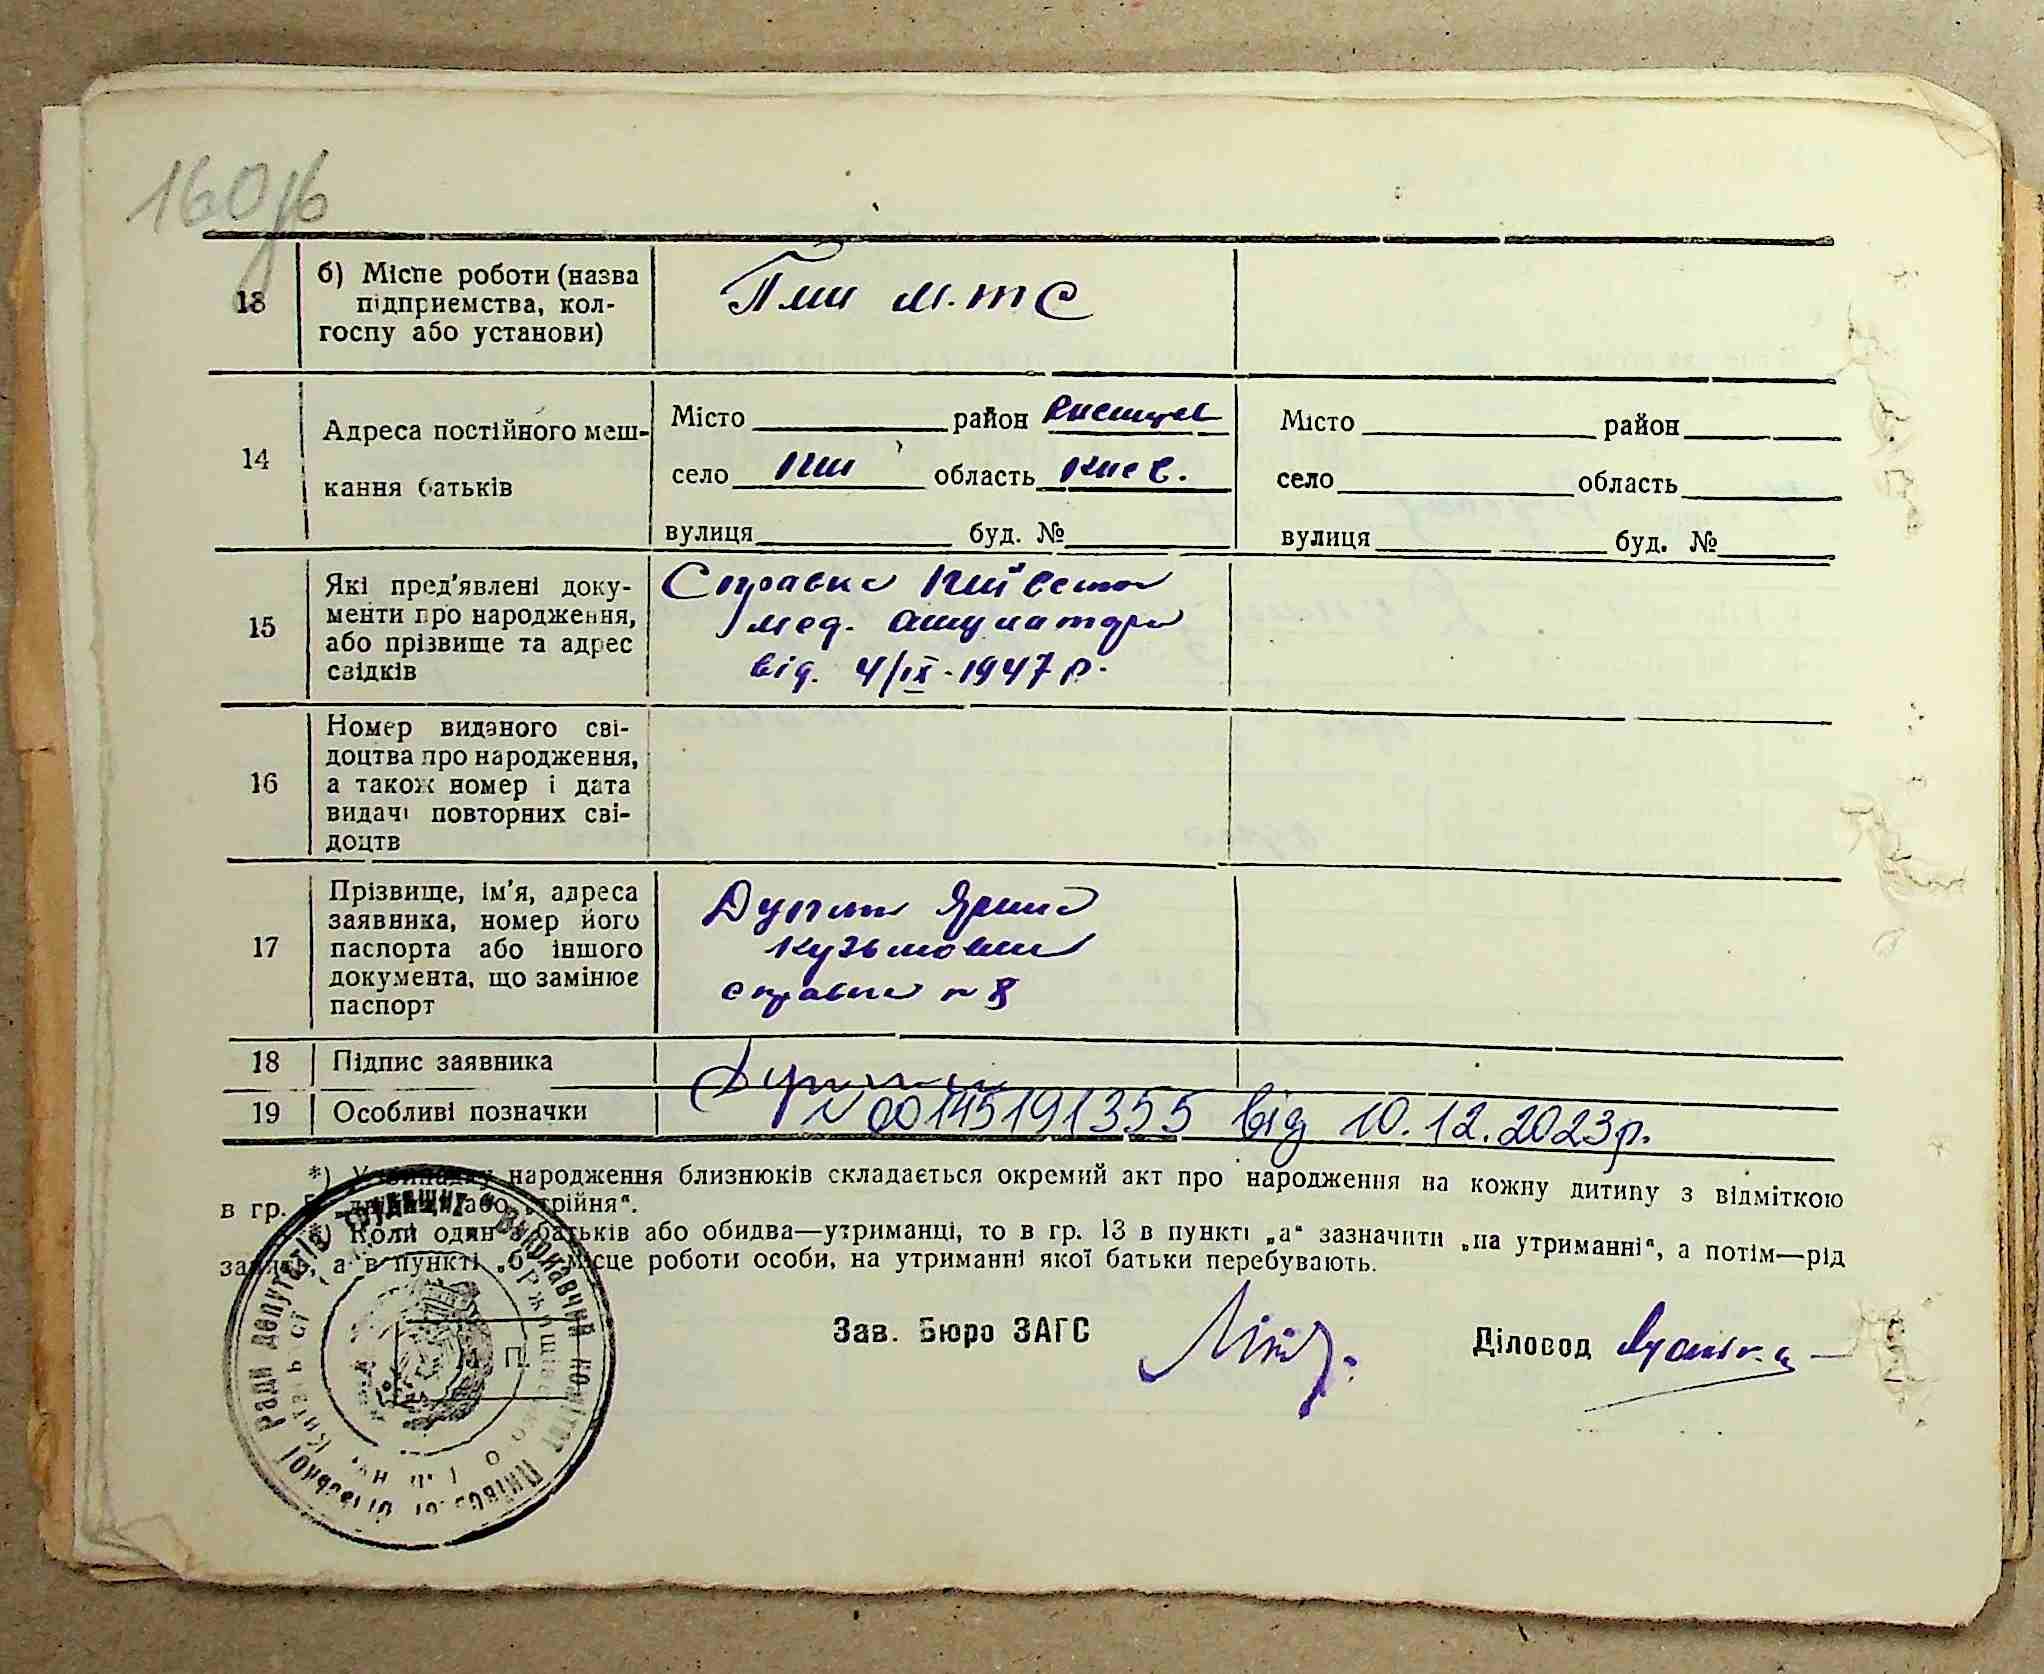 160
13
б) Місце роботи (назва
підприємства, кол-
госпу або установи)
М.Т.С
14
Адреса постійного меш-
кання батьків
Місто район
село область Киев.
вулиця буд. №
Місто район
село область
вулиця буд. №
15
Які пред'явлені доку-
менти про народження,
або прізвище та адрес
свідків
Справка
мед.
від. 4/IX-1947 р.
16
Номер виданого сві-
доцтва про народження,
а також номер і дата
видачі повторних сві-
доцтв
17
Прізвище, ім'я, адреса
заявника, номер його
паспорта або іншого
документа, що замінює
паспорт
Ярина
Кузьмовна
справка n 8
18
Підпис заявника
19
Особливі позначки
N 00145191355 від 10.12.2023р.
*) У випадку народження близнюків складається окремий акт про народження на кожну дитину з відміткою
в гр. або „трійня“.
Коли один з батьків або обидва—утриманці, то в гр. 13 в пункті „а“ зазначити „на утриманні“, а потім—рід
а в пункті „б“ місце роботи особи, на утриманні якої батьки перебувають.
Зав. Бюро ЗАГС
Діловод
Виконавчий комітет сільської Ради депутатів трудящих
М. П.